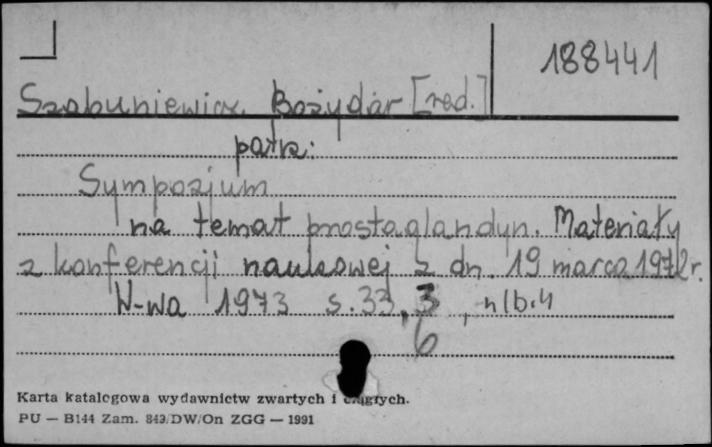 188441
Szabuniewicz, Bożydar [red.]
patrz:
Sympozjum
na temat prostaglandyn. Materiały
z konferencji naukowej z dn. 19 marca 1972r.
W-wa 1973 s. 33, 3, nlb. 4
6
Karta katalogowa wydawnictw zwartych i ciągłych.
PU — B144 Zam. 843/DW/On ZGG — 1991